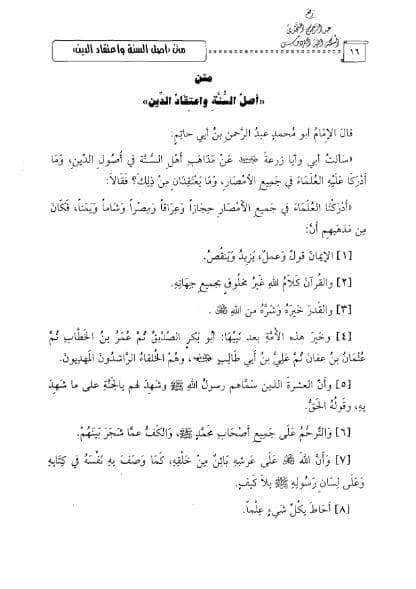 رفع
عبد الرحمن النجدي
أسكنه الله الفردوس
متن «أصل السنة واعتقاد الدين»
١٦
متن
«أصلُ السُّنَّةِ واعتقادُ الدِّين»
قالَ الإمَامُ أبو محمدٍ عبدُ الرَّحمنِ بنُ أبي حاتِمٍ:
«سَأَلتُ أبي وأبا زرعةَ عَنْ مَذَاهبِ أَهْلِ السُّنَّةِ في أُصُولِ الدِّينِ، وَمَا
أَدْرَكَا عَلَيْهِ العُلَمَاءَ في جَمِيعِ الأَمْصَارِ، وَمَا يَعْتَقِدَانِ مِنْ ذلِكَ؟ فَقَالَا:
«أَدْرَكْنَا العُلَمَاءَ في جَمِيعِ الأَمْصَارِ حِجَازاً وَعِرَاقاً وَمِصْراً وَشَاماً وَيَمَناً، فَكَانَ
مِن مَذهَبِهِم أَنَّ:
[١] الإيمَانَ قولٌ وَعملٌ، يَزِيدُ وَيَنقُصُ.
[٢] والقُرآنَ كَلَامُ اللهِ غَيرُ مَخلُوقٍ بجميعِ جِهَاتِهِ.
[٣] والقَدرَ خَيرَهُ وَشَرَّهُ من اللهِ.
[٤] وخَيرَ هذه الأُمَّةِ بعدَ نَبِيِّهَا: أبُو بَكرٍ الصِّدِّيقُ ثُمَّ عُمَرُ بنُ الخَطَّابِ ثُمَّ
عُثْمَانُ بنُ عفانَ ثُمَّ عَلِيُّ بنُ أبي طَالِبٍ، وَهُمُ الخُلفاءُ الرَّاشدُونَ المَهديونَ.
[٥] وأنَّ العشرةَ الذينَ سَمَّاهم رسولُ اللهِ ﷺ وشَهِدَ لهم بِالجَنَّةِ على ما شهِدَ
بِهِ، وَقَولُهُ الحَقُّ.
[٦] وَالتَّرحُّمَ عَلَى جَمِيعِ أَصْحَابِ مُحَمَّدٍ ﷺ، وَالكَفَّ عمَّا شَجَرَ بَيْنَهُمْ.
[٧] وَأنَّ اللهَ عَلَى عَرشِهِ بَائِنٌ مِنْ خَلْقِهِ، كَمَا وَصَفَ بِهِ نَفْسَهُ في كِتَابِهِ
وَعَلَى لِسَانِ رَسُولِهِ ﷺ بِلَا كَيفٍ.
[٨] أَحَاطَ بِكُلِّ شَيءٍ عِلْماً.